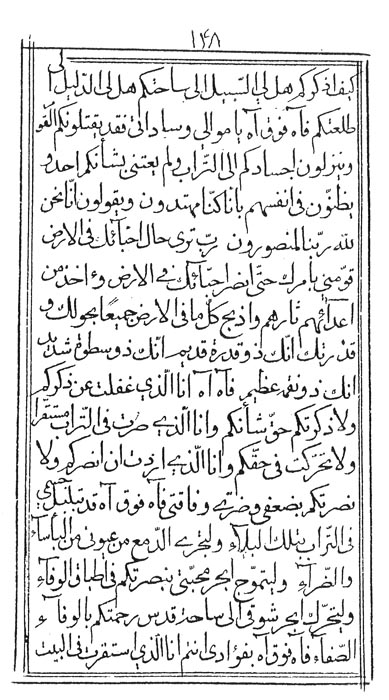 ١٤٨
كيف اذكركم هل لي السّبيل الى ساحتكم هل لي الدّليل الى
طلعتكم فاه فوق آه يا موالي وساداتي فقد يقتلونكم القوم
وينزلون اجسادكم الى التّراب ولم يعتني بشأنكم احد و
يظنّون في انفسهم بانّا كنّا مهتدون ويقولون انّا نحن
لله ربّنا لمنصورون ربّ ترى حال احبّائك في الارض
قوّمني بامرك حتّى انصر احبّائك في الارض وءاخذ من
اعدائهم ثارهم واذبح كلّ ما في الارض جميعًا بحولك و
قدرتك انّك ذو قدرة قديم انّك ذو سطوة شديد
انّك ذو نقمة عظيم فآه آه انا الّذي غفلت عن ذكركم
ولا ذكرتكم حقّ شأنكم وانا الّذي صرت في التّراب مستقرّا
ولا تحرّكت في حقّكم وانا الّذي اردت ان انصركم ولا
نصرتكم بضعفي وضرّي وفاقتي فآه فوق آه قد تبلبل جسمي
في التّراب بتلك البلاء وليجري الدّمع من عيوني من البأساء
والضّرآء وليتموّج ابحر محبّتي بنصرتكم في اطباق الوفاء
وليتحرّك ابحر شوقي الى ساحة قدس رحمتكم بالوفآء و
الصّفاء فآه فوق آه بفؤادي انتم انا الّذي استقرت في البيت